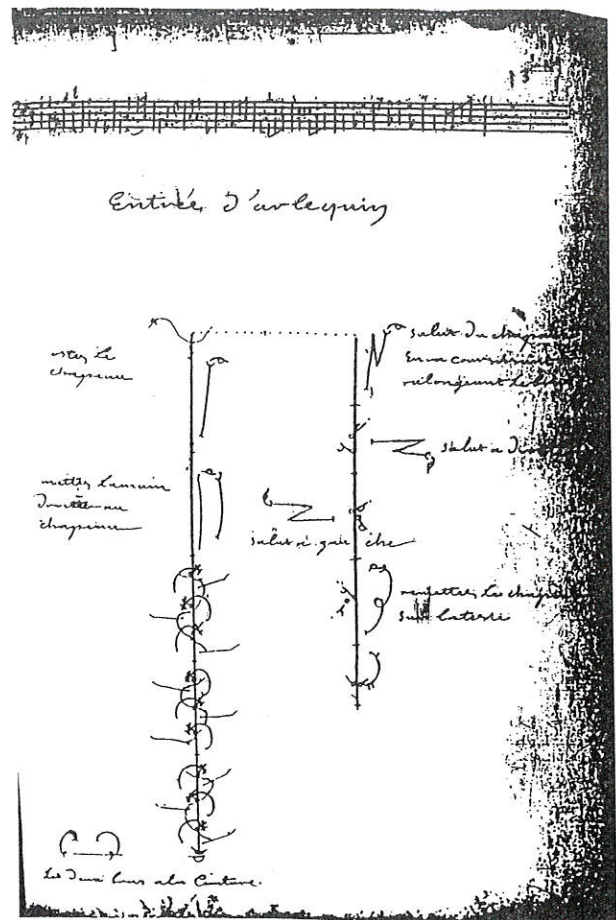 13
Entrée d'arlequin
ostez le
chapeau
mettez la main
droitte au
chapeau
salut du chapeau
salut a
salut a gauche
remettez le
sur la teste
Les deux bras a la Ceinture.